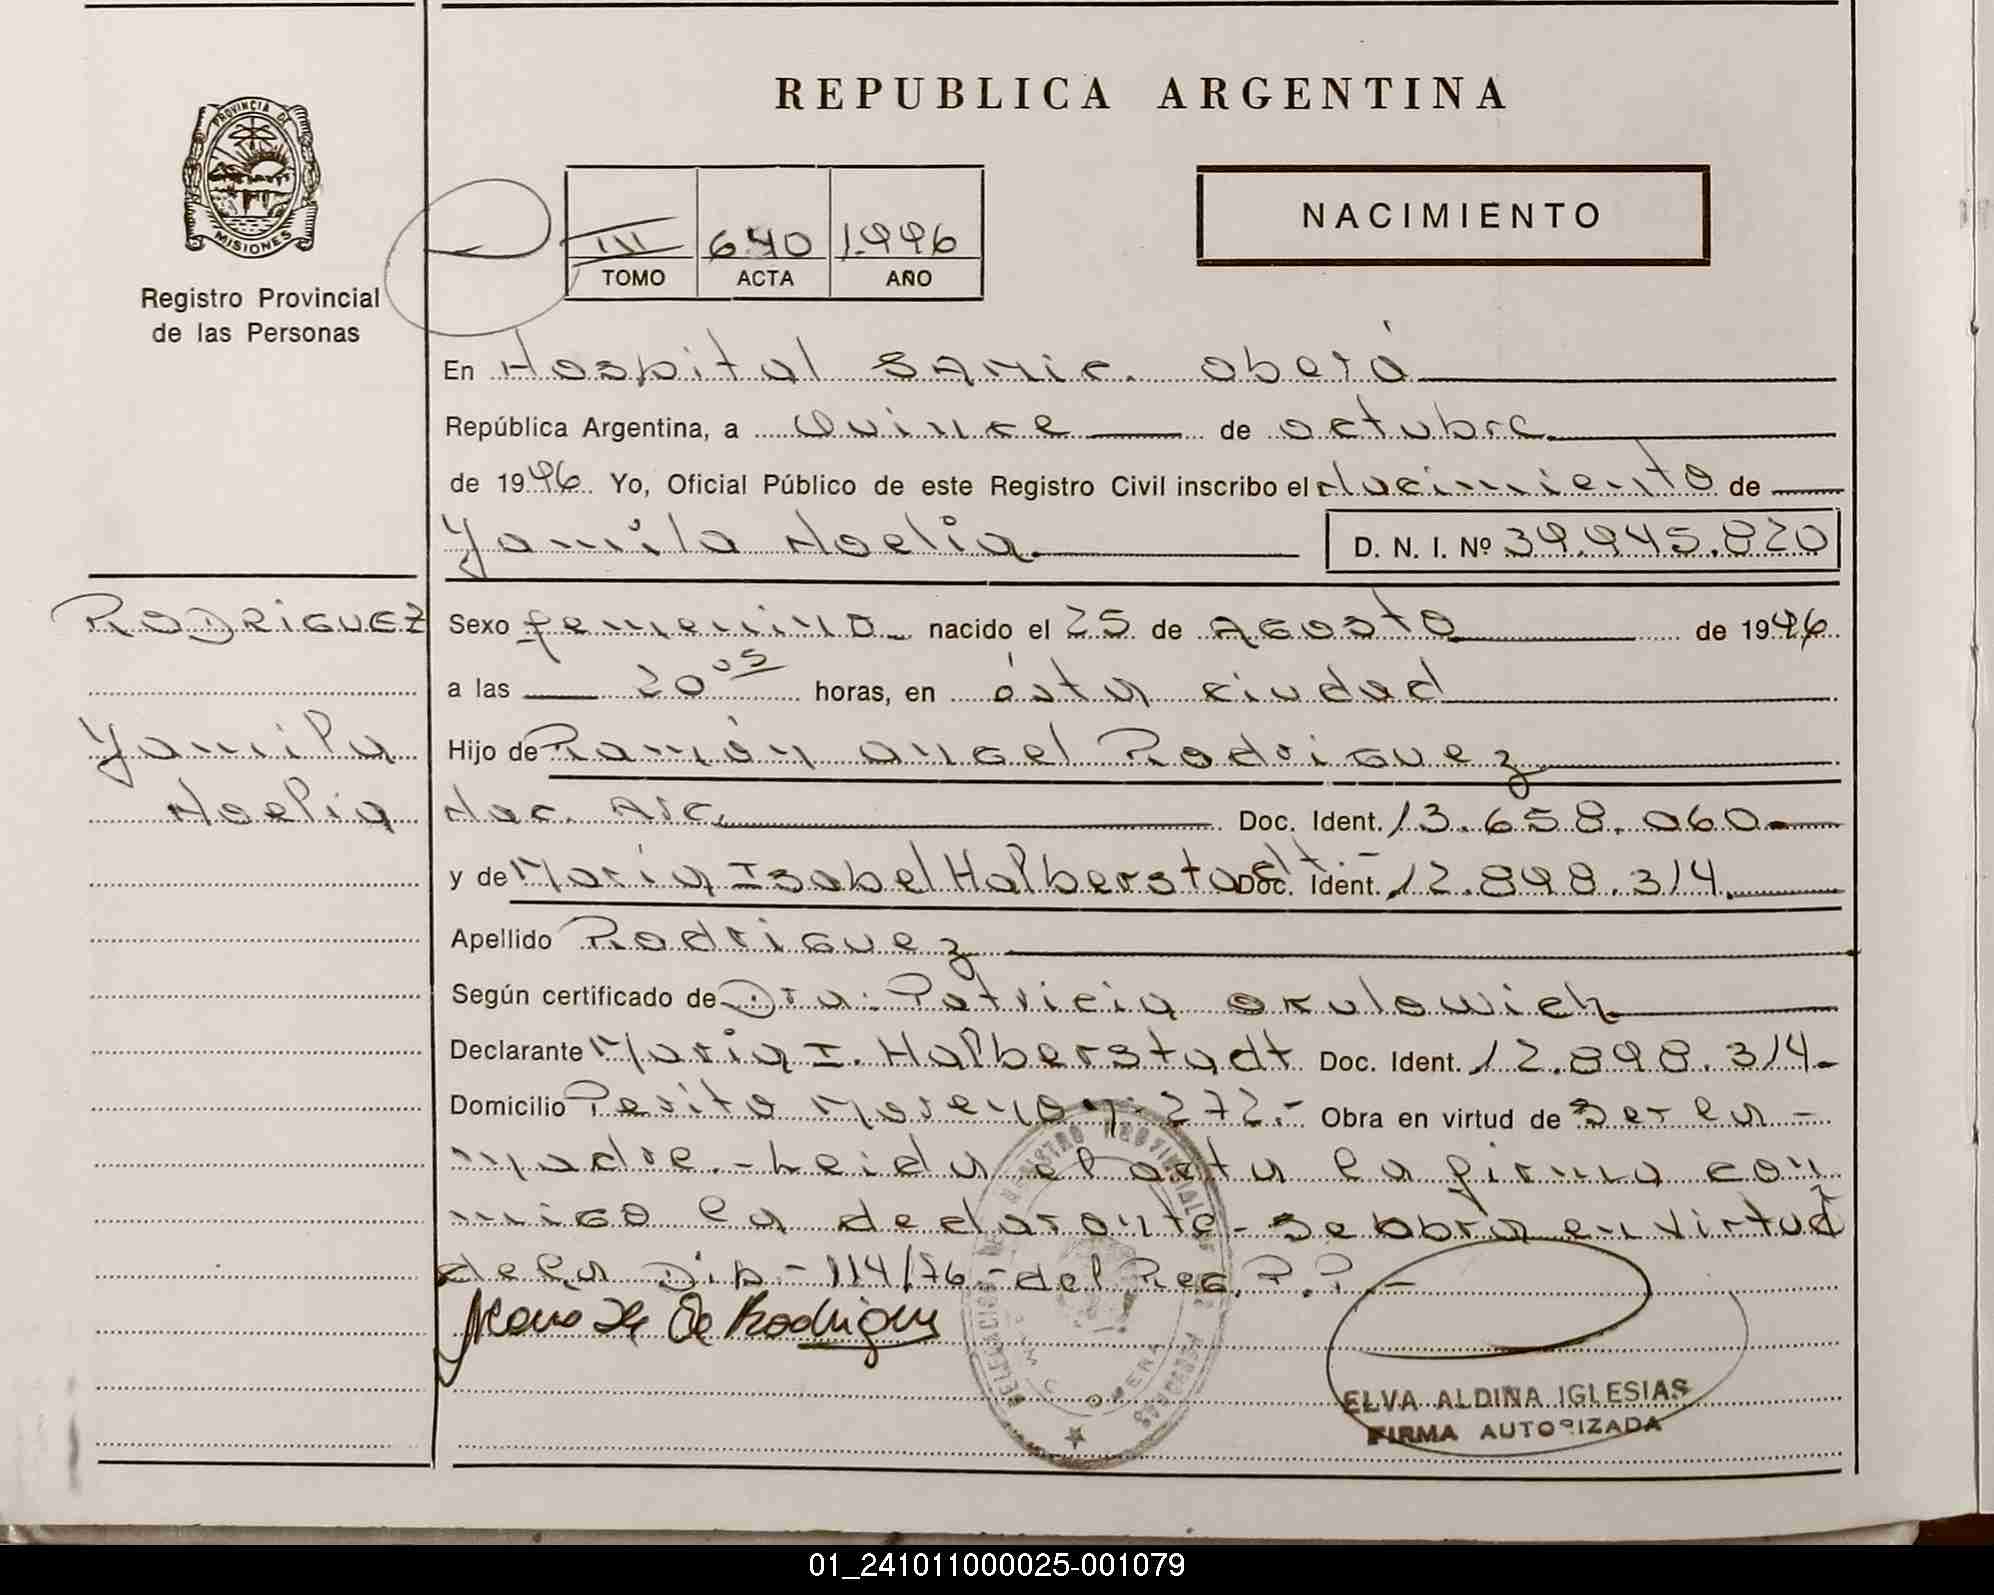 REPUBLICA ARGENTINA
PROVINCIA DE
MISIONES
Registro Provincial
de las Personas
III 640 1.996
TOMO ACTA AÑO
NACIMIENTO
En Hospital SAMIC. Oberá
República Argentina, a Quince de octubre
de 1996 Yo, Oficial Público de este Registro Civil inscribo el Nacimiento de
Yamila Noelia D. N. I. Nº 39.945.820
RODRIGUEZ
Yamila
Noelia
Sexo femenino nacido el 25 de Agosto de 1996
a las 20 05 horas, en ésta ciudad
Hijo de Ramón Angel Rodriguez
Nac. Arg. Doc. Ident. 13.658.060.-
y de Maria Isabel Halberstadt.- Doc. Ident. 12.898.314.
Apellido Rodriguez
Según certificado de Dra. Patricia Okulowich
Declarante Maria I. Halberstadt Doc. Ident. 12.898.314.-
Domicilio Perito Moreno nº 272.- Obra en virtud de ser la -
madre.- Leida el acta la firma con
migo la declarante- se obra en virtud
de la Dip - 114/76 - del Reg. P.P. -
de Rodriguez
ELVA ALDINA IGLESIAS
FIRMA AUTORIZADA
01_241011000025-001079